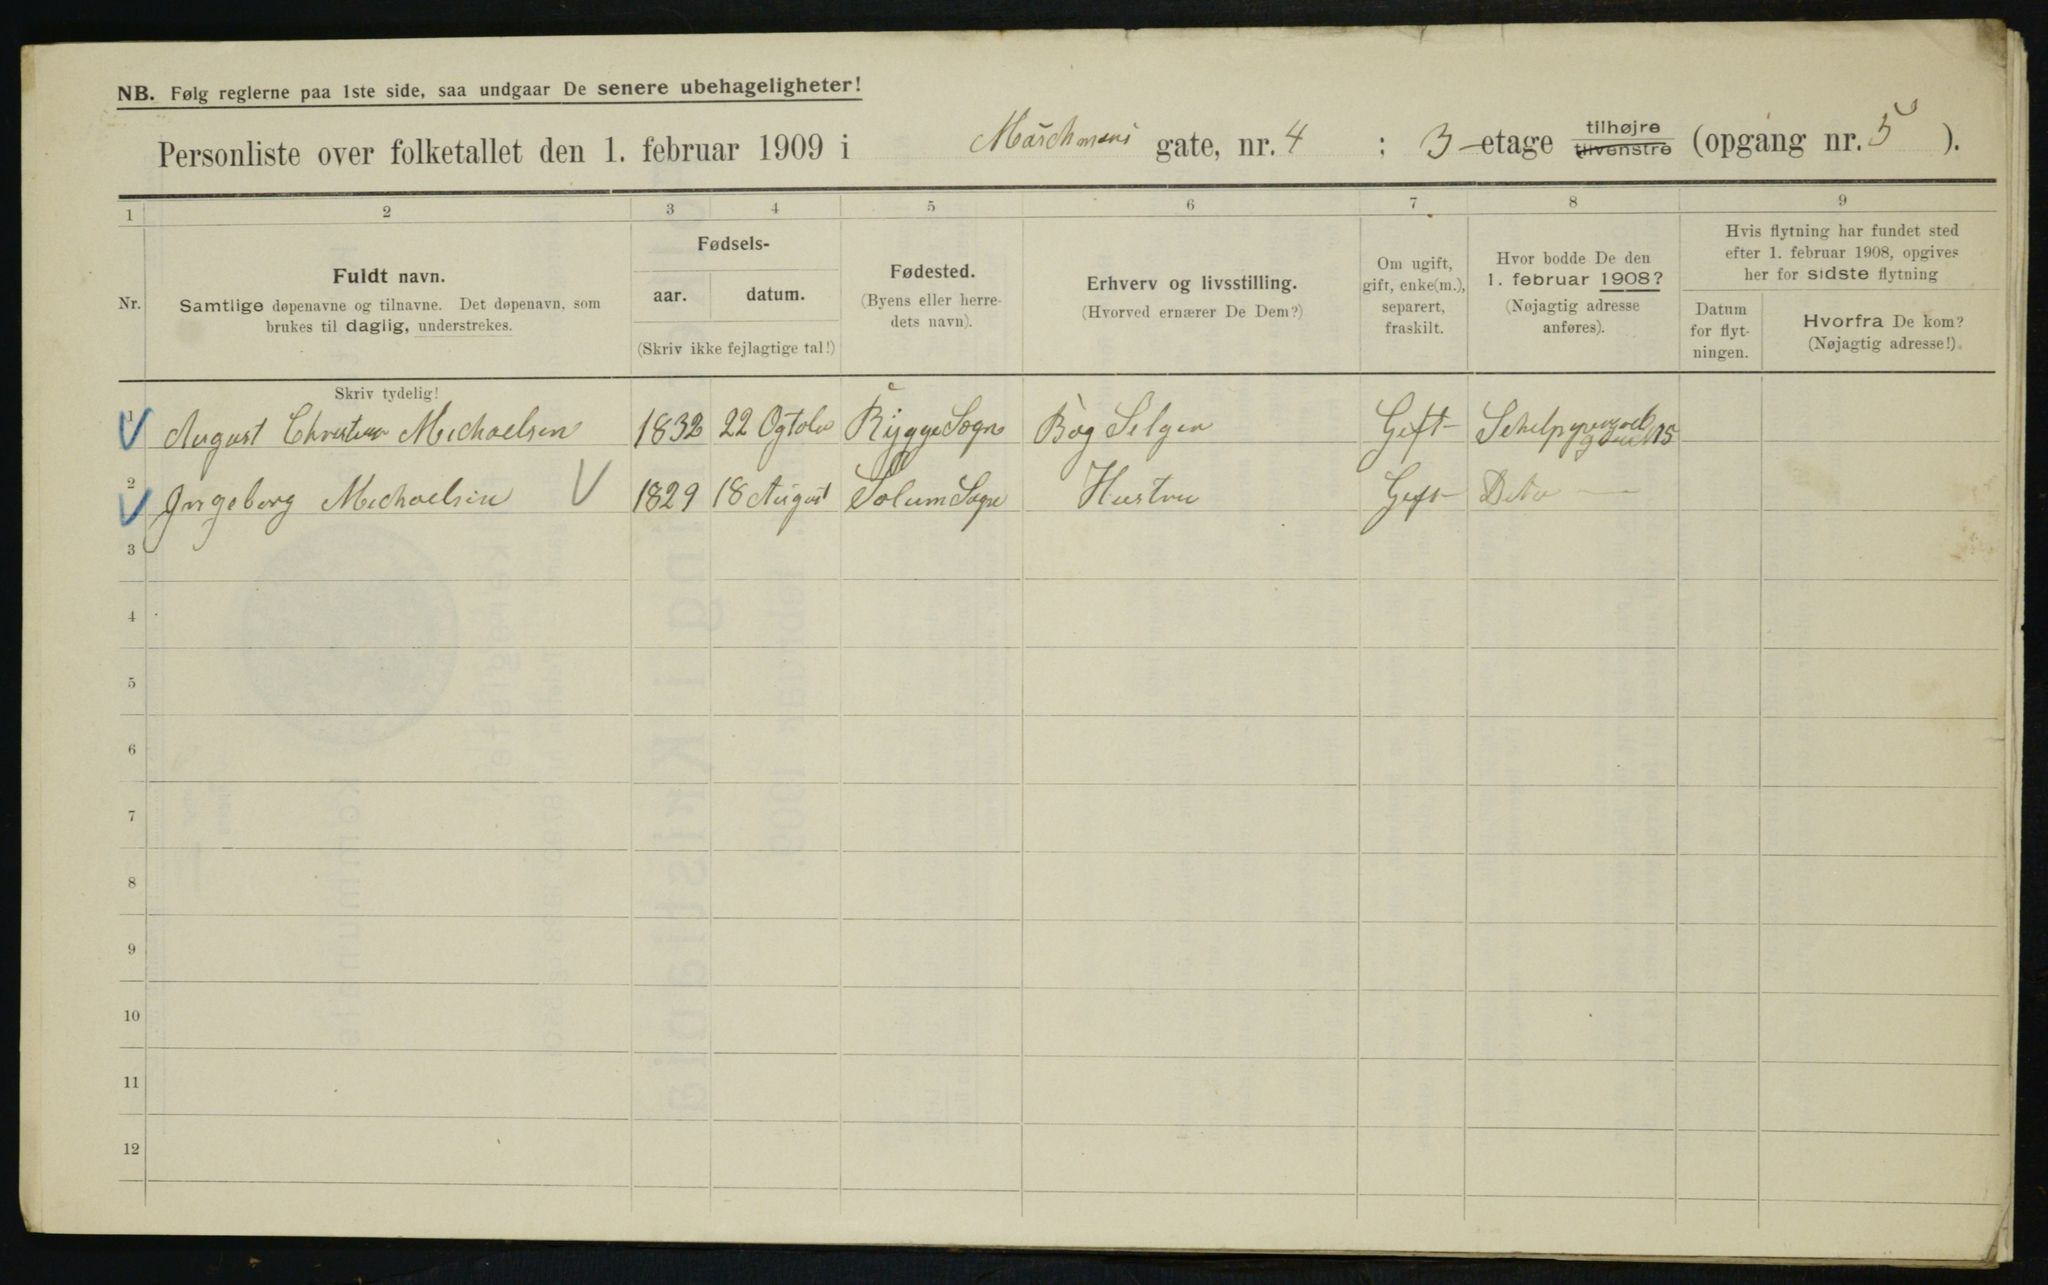 NB. Følg reglerne paa 1ste side, saa undgaar De senere ubehageligheter!
Personliste over folketallet den 1. februar 1909 i Marchmans gate, nr. 4 ; 3-etage tilhøjre tilvenstre (opgang nr. 5 ).
1 2 3 4 5 6 7 8 9
Nr.
Fuldt navn.
Samtlige døpenavne og tilnavne. Det døpenavn, som
brukes til daglig, understrekes.
Fødsels-
aar. datum.
(Skriv ikke fejlagtige tal!)
Fødested.
(Byens eller herre-
dets navn).
Erhverv og livsstilling.
(Hvorved ernærer De Dem?)
Om ugift,
gift, enke(m.),
separert,
fraskilt.
Hvor bodde De den
1. februar 1908?
(Nøjagtig adresse
anføres).
Hvis flytning har fundet sted
efter 1. februar 1908, opgives
her for sidste flytning
Datum
for flyt-
ningen.
Hvorfra De kom?
(Nøjagtig adresse!).
Skriv tydelig!
1 August Christian Michaelsen 1832 22 Ogtober Rygge Sogn Bog Selger Geft 15
2 Ingeborg Michaelsen 1829 18 August Solum Sogn Hustru Geft Deto
3
4
5
6
7
8
9
10
11
12